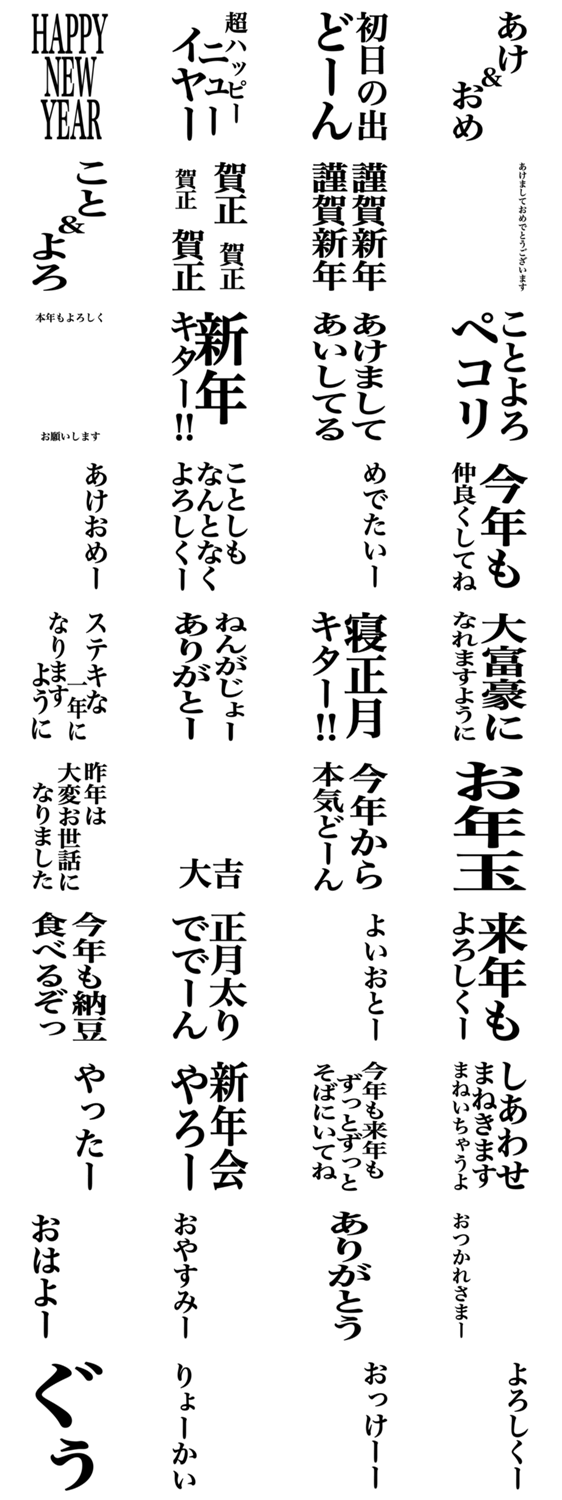 HAPPY
NEW
YEAR
超ハッピー
ニュー
イヤー
初日の出
どーん
あけ
&
おめ
こと
&
よろ
賀正
賀正
賀正
賀正
謹賀新年
謹賀新年
あけましておめでとうございます
本年もよろしく
お願いします
新年
キター!!
あけまして
あいしてる
ことよろ
ペコリ
あけおめー
ことしも
なんとなく
よろしくー
めでたいー
今年も
仲良くしてね
ステキな
一年に
なります
ように
ねんがじょー
ありがとー
寝正月
キター!!
大富豪に
なれますように
昨年は
大変お世話に
なりました
大吉
今年から
本気どーん
お年玉
今年も納豆
食べるぞっ
正月太り
ででーん
よいおとー
来年も
よろしくー
やったー
新年会
やろー
今年も来年も
ずっとずっと
そばにいてね
しあわせ
まねきます
まねいちゃうよ
おはよー
おやすみー
ありがとう
おつかれさまー
ぐぅ
りょーかい
おっけーー
よろしくー